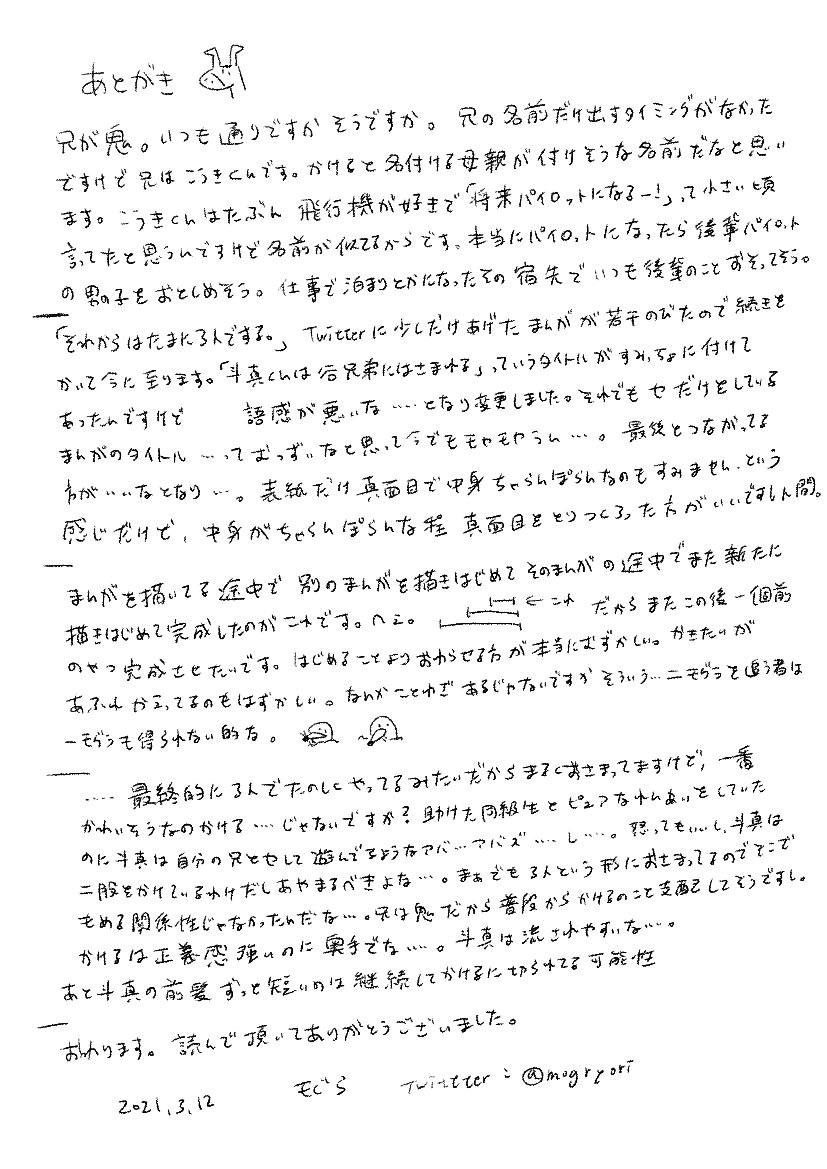 あとがき
兄が鬼。いつも通りですか そうですか。 兄の名前だけ出すタイミングがなかった
ですけど兄はこうきくんです。かけると名付ける母親が付けそうな名前だなと思い
ます。こうきくんはたぶん 飛行機が好きで「将来パイロットになるー!」って小さい頃
言ってたと思うんですけど名前が似てるからです、本当にパイロットになったら後輩パイロット
の男の子をおとしめそう。仕事で泊まりとかになったその宿先でいつも後輩のことおそってそう。
「それからはたまに3人でする。」 Twitterに少しだけあげたまんがが若干のびたので続きを
かいて今に至ります。「斗真くんは 兄弟にはさまれる」っていうタイトルがすみっちょに付けて
あったんですけど 語感が悪いな……となり変更しました。それでも セ だけとしている
まんがのタイトル …ってむっずいなと思って今でもモヤモヤうん…。 最後とつながってる
方がいいなとなり…。表紙だけ真面目で中身ちゃらんぽらんなのもすみません、という
感じだけど、中身がちゃらんぽらんな程 真面目をとりつくろった方がいいですし人間。
まんがを描いてる途中で 別のまんがを描きはじめて そのまんがの途中でまた新たに
描きはじめて完成したのがこれです。へえ。 ←これ だからまたこの後一個前
のやつ完成させたいです。はじめることよりおわらせる方が本当にむずかしい。かきたいが
あふれかえってるのもはずかしい。なんかことわざあるじゃないですかそういう…二モグラを追う者は
一モグラも得られない的な。
…… 最終的に3人でたのしくやってるみたいだからまるくおさまってますけど、一番
かわいそうなのかける…じゃないですか?助けた同級生とピュアなれんあいをしていた
のに斗真は自分の兄とセして遊んでるようなアバ…アバズ……し…。怒ってもいいし、斗真は
二股をかけているわけだしあやまるべきよな…。まあでも3人という形におさまってるのでそこで
もめる関係性じゃなかったんだな…。兄は鬼だから普段からかけるのこと支配してそうですし。
かけるは正義感強いのに奥手でな…。斗真は流されやすいな…。
あと斗真の前髪ずっと短いのは継続してかけるに切られてる可能性
おわります。読んで頂いてありがとうございました。
2021.3.12 もぐら Twitter:@mogryori